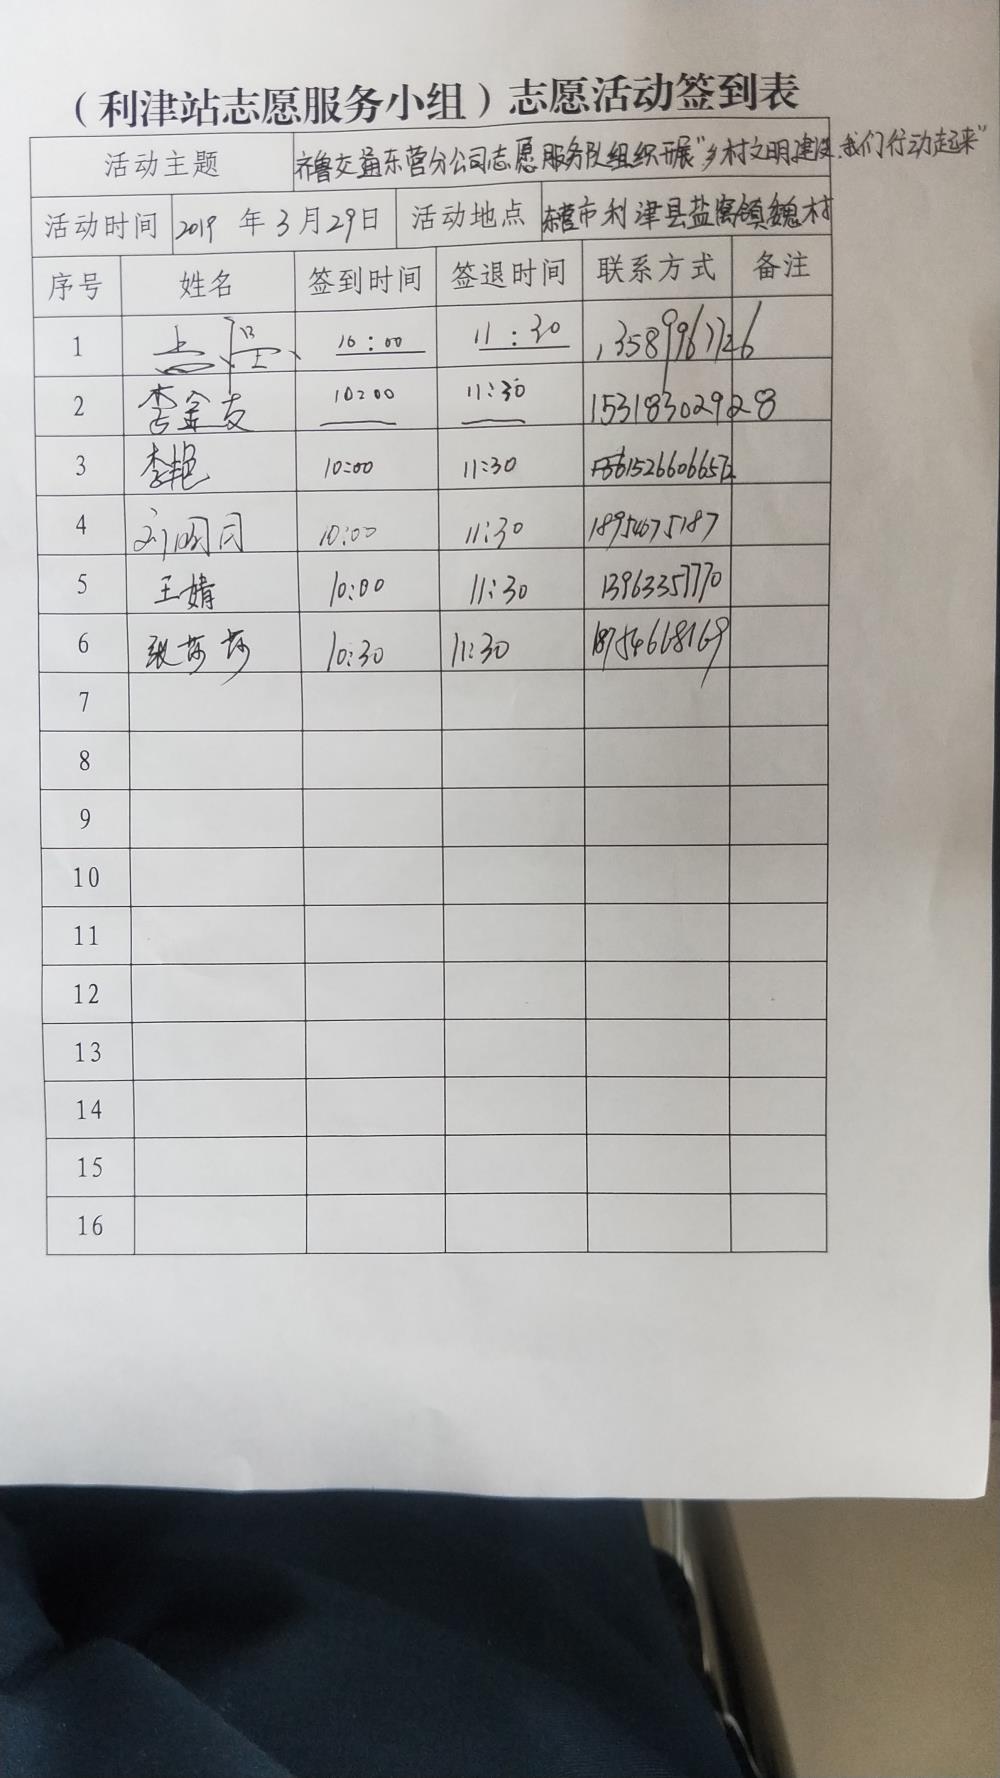 （利津站志愿服务小组）志愿活动签到表
活动主题 齐鲁交通东营分公司志愿服务队组织开展"乡村文明建设,我们行动起来"
活动时间 2019 年 3 月 29 日 活动地点 东营市利津县盐窝镇魏村
序号 姓名 签到时间 签退时间 联系方式 备注
1 10:00 11:30 13589967726
2 李金友 10:00 11:30 15318302928
3 李艳 10:00 11:30
4 10:00 11:30 18954675187
5 王婧 10:00 11:30 13963357770
6 张莎莎 10:30 11:30 18754668169
7
8
9
10
11
12
13
14
15
16